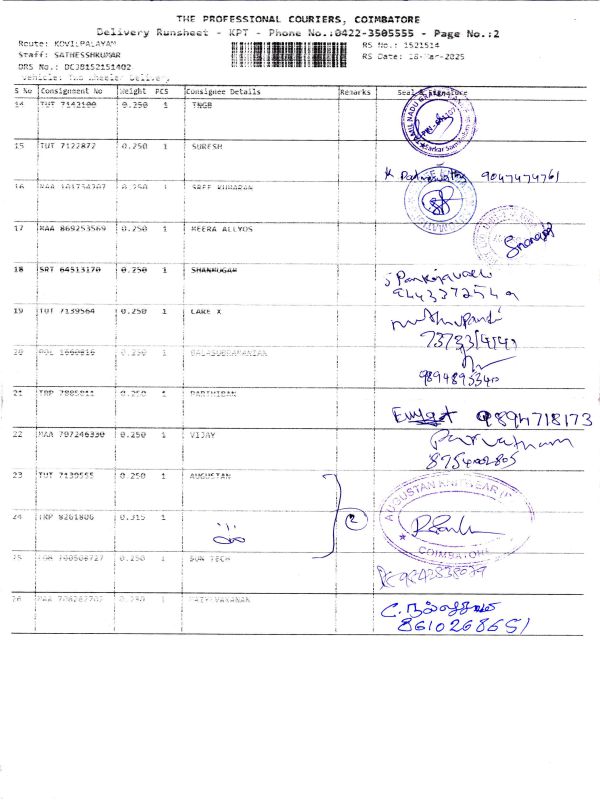 THE PROFESSIONAL COURIERS, COIMBATORE
Delivery Runsheet - KPT - Phone No.:0422-3505555 - Page No.:2
Route: KOVILPALAYAM
RS No.: 1521514
Staff: SATHESSHKUMAR
RS Date: 18-Mar-2025
DRS No.: DCJB152151402
Vehicle: Two Wheeler Delivery
S No Consignment No Weight PCS Consignee Details Remarks Seal & Signature
14 TUT 7142100 0.250 1 TNGB
TAMIL NADU GRAMA
15 TUT 7122872 0.250 1 SURESH
9047474761
16 MAA 101754707 0.250 1 SREE KUMARAN
17 MAA 869253569 0.250 1 MEERA ALLYOS
18 SRT 64513170 0.250 1 SHANMUGAM
9443372549
19 TUT 7139564 0.250 1 CARE X
20 POL 1660816 0.250 1 BALASUBRAMANIAN
9894895340
21 TRP 7885011 0.250 1 PARTHIBAN
9894718173
22 MAA 707246330 0.250 1 VIJAY
Parvatham
8754002805
23 TUT 7139555 0.250 1 AUGUSTAN
AUGUSTAN KNITWEAR
24 TRP 8261806 0.315 1
2
COIMBATORE
25 700508727 0.250 1 SUN TECH
9842838079
26 MAA 708262702 0.250 1
8610268651